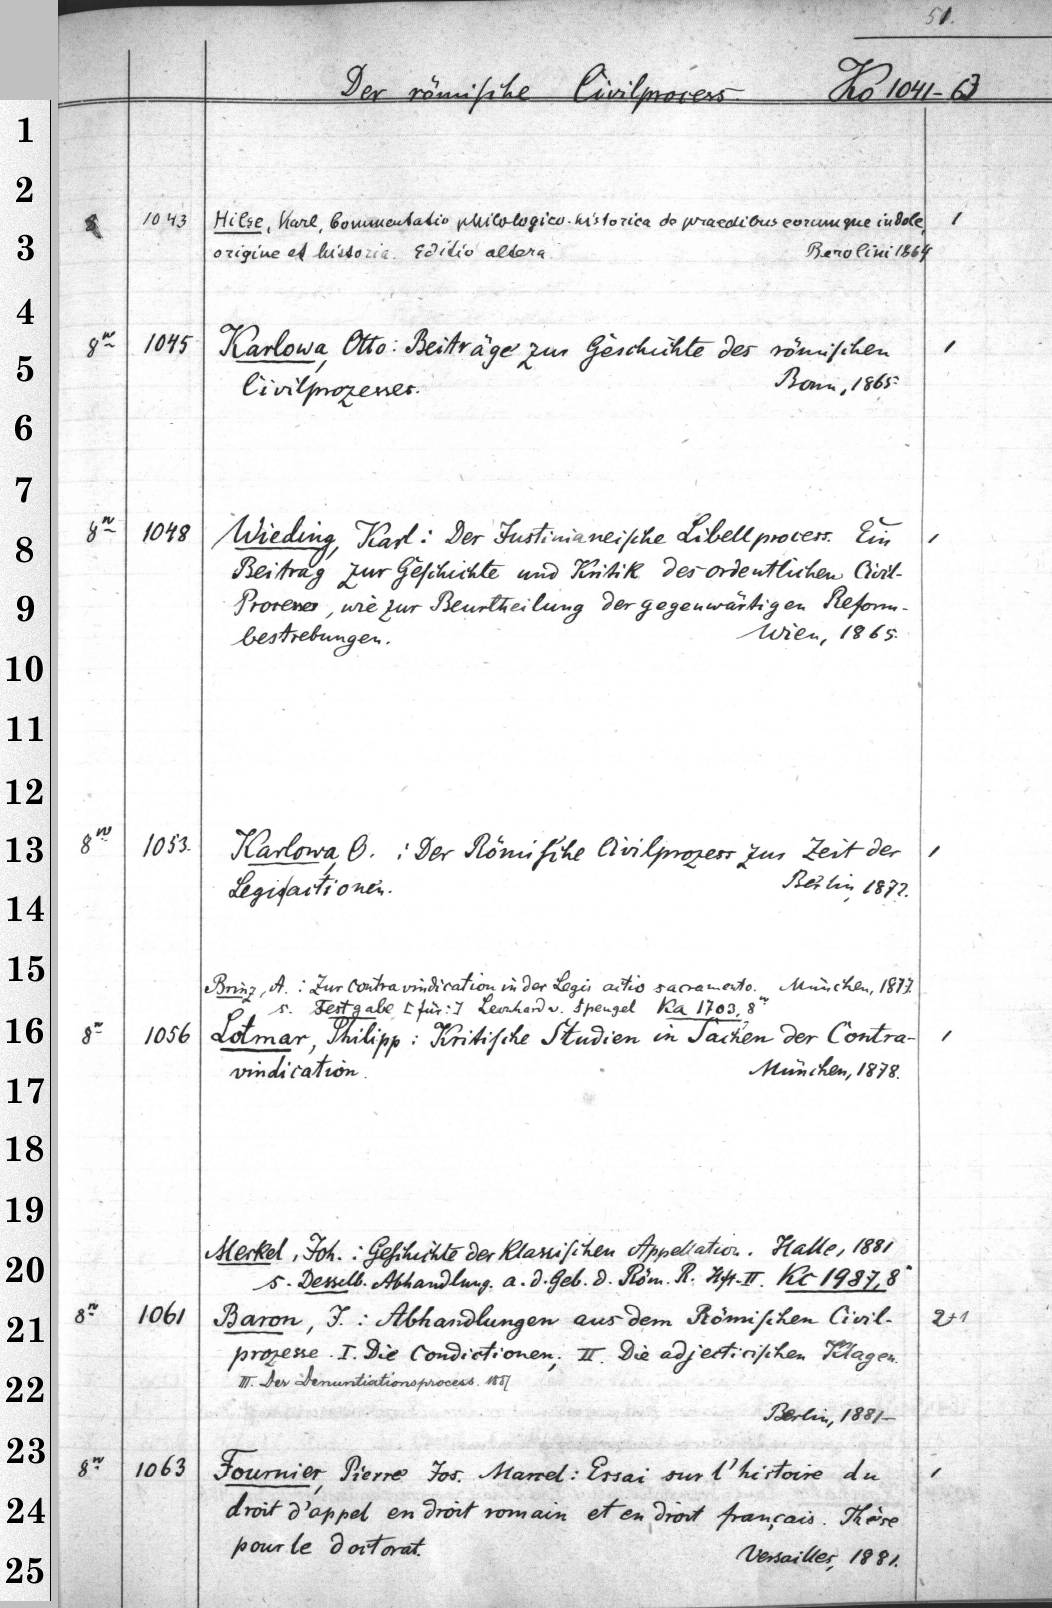 51.
Der römische Civilprocess. Ko 1041-63
1
2
8 1043 Hilse, Karl, Commentatio philologico-historica de praedibus eorumque indole, 1
3
origine et historia. Editio altera. Berolini 1864
4
8° 1045 Karlowa, Otto: Beiträge zur Geschichte des römischen 1
5
Civilprozesses. Bonn, 1865.
6
7
8° 1048 Wieding, Karl: Der Justinianeische Libellprocess. Ein 1
8
Beitrag zur Geschichte und Kritik des ordentlichen Civil-
9
Processes, wie zur Beurtheilung der gegenwärtigen Reform-
bestrebungen. Wien, 1865.
10
11
12
13
8° 1053. Karlowa, O. : Der Römische Civilprozess zur Zeit der 1
Legisactionen. Berlin, 1872.
14
15
Brinz, A. : Zur Contravindication in der Legis actio sacramento. München, 1877.
s. Festgabe [für:] Leonhard v. Spengel Ka 1703, 8°
16
8° 1056 Lotmar, Philipp : Kritische Studien in Sachen der Contra- 1
17
vindication. München, 1878.
18
19
Merkel, Joh. : Geschichte der klassischen Appellation. Halle, 1881
20
s. Desselb. Abhandlung. a. d. Geb. d. Röm. R. Hft. II. Kc 1987, 8°
21
8° 1061 Baron, J. : Abhandlungen aus dem Römischen Civil- 2+1
prozesse. I. Die Condictionen; II. Die adjecticischen Klagen.
22
III. Der Denuntiationsprocess. 1887
Berlin, 1881-
23
8° 1063 Fournier, Pierre Jos. Marcel: Essai sur l'histoire du 1
24
droit d'appel en droit romain et en droit français. Thèse
25
pour le doctorat. Versailles, 1881.